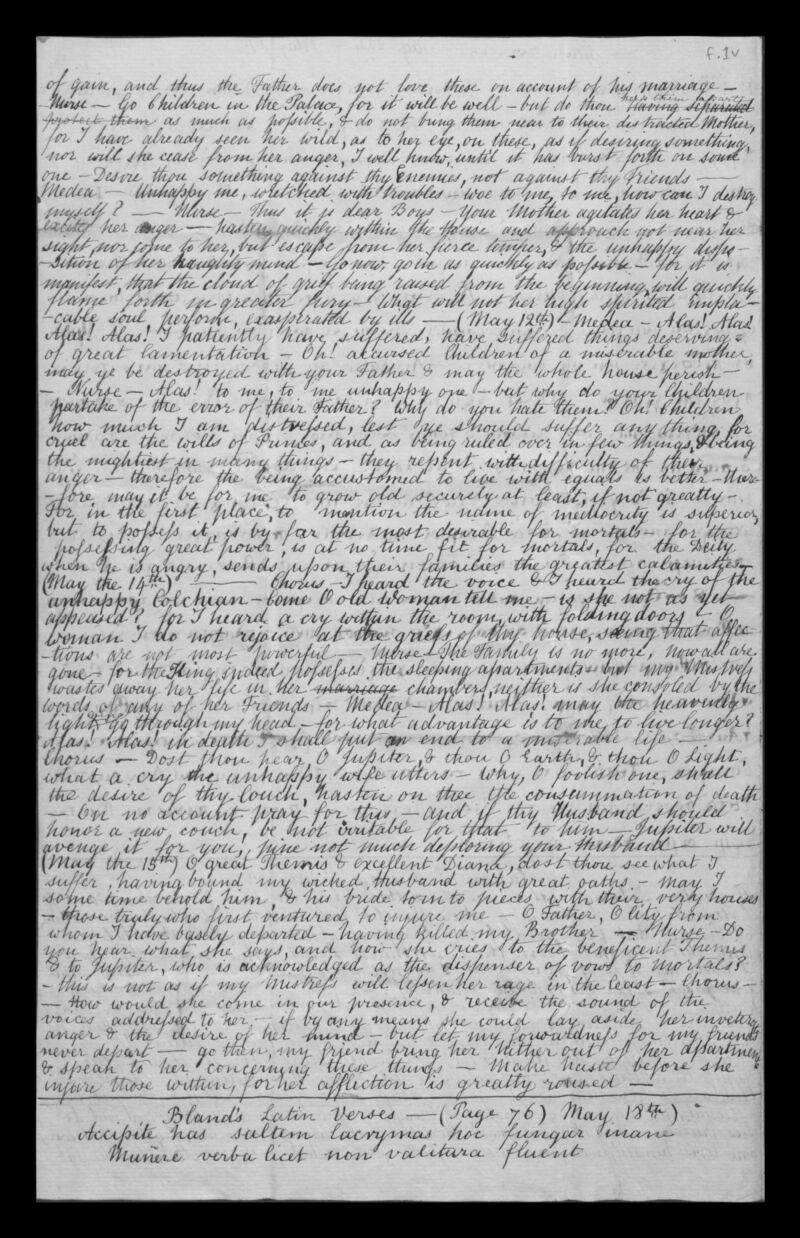 f.1v
of gain, and thus the Father does not love these on account of his marriage —
keep them apart
Nurse — Go Children in the Palace, for it will be well — but do thou having separated
protect them as much as possible, & do not bring them near to their distracted Mother,
for I have already seen her wild, as to her eye, on these, as if desiring something,
nor will she cease from her anger, I well know, until it has burst forth on some
one — Desire thou something against thy Enemies, not against thy Friends —
Medea — Unhappy me, wretched with troubles — woe to me, to me, how can I destroy
myself? — Nurse — Thus it is dear Boys — Your Mother agitates her heart &
excites her anger — hasten quickly within the House and approach not near her
sight, nor come to her, but escape from her fierce temper, & the unhappy dispo-
-sition of her haughty mind — go now, go in as quickly as possible — for it is
manifest, that the cloud of grief being raised from the beginning, will quickly
flame forth in greater fury — what will not her high spirited impla-
-cable soul perform, exasperated by ills — (May 12th) — Medea — Alas! Alas!
Alas! Alas! I patiently have suffered, have suffered things deserving
of great lamentation — Oh! accursed Children of a miserable mother,
may ye be destroyed with your Father & may the whole house perish —
— Nurse — Alas! to me, to me unhappy one — but why do your Children
partake of the error of their Father? Why do you hate them? Oh! Children
how much I am distressed, lest ye should suffer any thing, for
cruel are the wills of Princes, and as being ruled over in few things, & being
the mightiest in many things — they repent with difficulty of their
anger — therefore the being accustomed to live with equals is better — there-
-fore may it be for me to grow old securely at least, if not greatly —
For in the first place, to mention the name of mediocrity is superior,
but to possess it, is by far the most desirable for mortals — for the
possessing great power, is at no time fit for mortals, for the Deity
when he is angry, sends upon their families the greatest calamities —
(May the 14th) — Chorus — I heard the voice & I heard the cry of the
unhappy Colchian — Come O old woman tell me — is she not as yet
appeased? for I heard a cry within the room, with folding doors — O
woman I do not rejoice at the griefs of thy house, seeing that affec-
-tions are not most powerful — Nurse — The Family is no more, now all are
gone — for the King indeed possesses the sleeping apartments — but my Mistress
wastes away her life in her marriage chamber, neither is she consoled by the
words of any of her Friends — Medea — Alas! Alas! may the heavenly
light go through my head — for what advantage is to me, to live longer?
Alas! Alas! in death I shall put an end to a miserable life —
Chorus — Dost thou hear, O Jupiter, & thou O Earth, & thou O Light,
what a cry the unhappy wife utters — Why, O foolish one, shall
the desire of thy couch, hasten on thee the consummation of death
— On no account pray for this — and if thy Husband should
honor a new couch, be not irritable for that to him — Jupiter will
avenge it for you, pine not much deploring your Husband —
(May the 15th) O great Themis & excellent Diana, dost thou see what I
suffer, having bound my wicked Husband with great oaths — May I
some time behold him, & his bride torn to pieces with their very houses
— those truly who first ventured to injure me — O Father, O City from
whom I have basely departed — having killed my Brother — Nurse — Do
you hear what she says, and how she cries to the beneficent Themis
& to Jupiter, who is acknowledged as the dispenser of vows to Mortals?
— this is not as if my Mistress will lessen her rage in the least — Chorus —
— How would she come in our presence, & receive the sound of the
voices addressed to her — if by any means she could lay aside her inveterate
anger & the desire of her mind — but let my forwardness for my friends
never depart — go then, my friend bring her hither out of her apartment
& speak to her concerning these things — Make haste before she
injure those within, for her affliction is greatly roused —
Bland's Latin Verses — (Page 76) May 18th)
Accipite has saltem lacrymas hoc fungar inane
Munere verba licet non valitura fluent